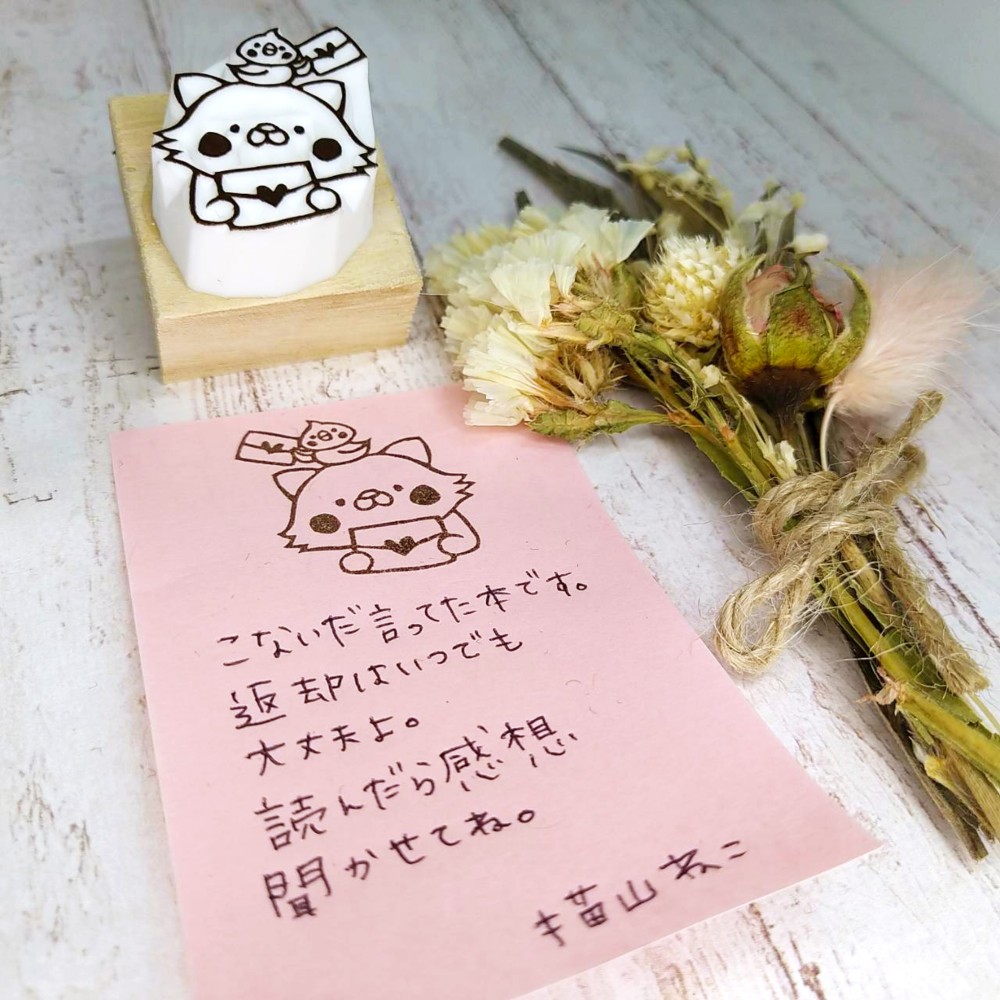 こないだ言ってた本です。
返却はいつでも
大丈夫よ。
読んだら感想
聞かせてね。
猫山ねこ